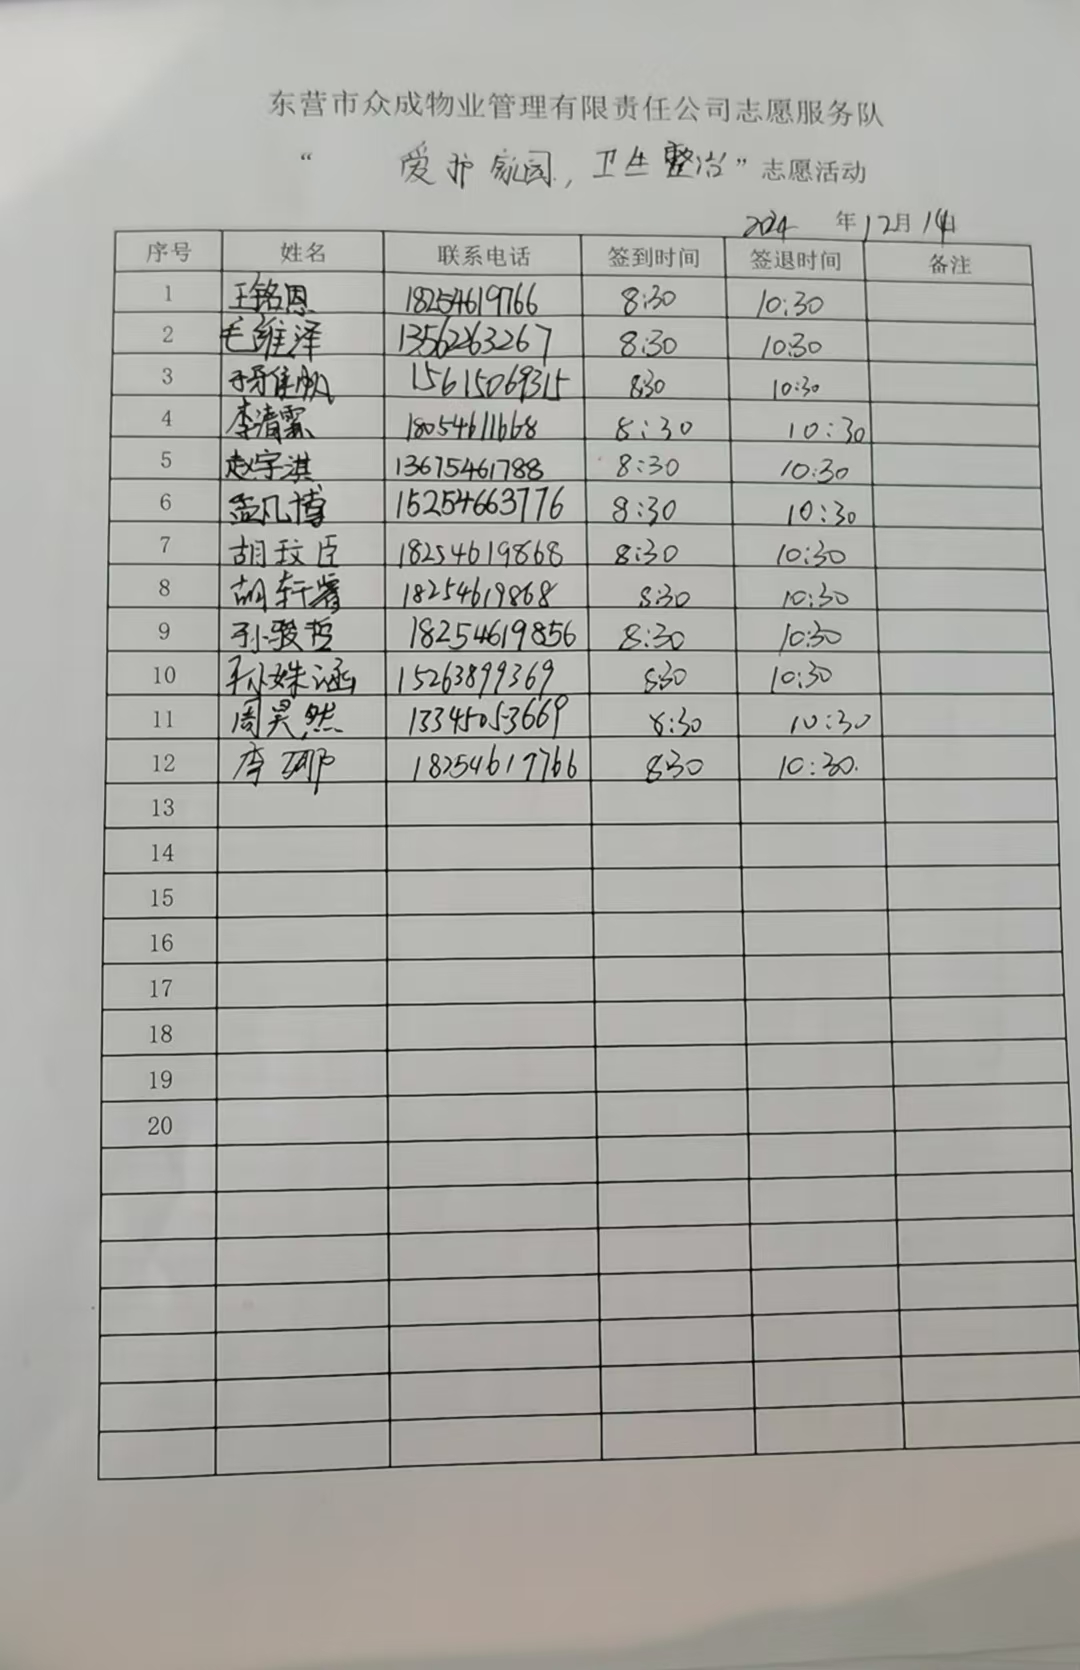 东营市众成物业管理有限责任公司志愿服务队
“ 爱护家园，卫生整治”志愿活动
2024 年12月14日
序号 姓名 联系电话 签到时间 签退时间 备注
1 王铭恩 18254619766 8:30 10:30
2 毛维泽 13562263267 8:30 10:30
3 15615069315 8:30 10:30
4 李清霖 18054611668 8:30 10:30
5 赵宇淇 13675461788 8:30 10:30
6 孟凡博 15254663776 8:30 10:30
7 胡玟臣 18254619868 8:30 10:30
8 胡轩睿 18254619868 8:30 10:30
9 孙骏哲 18254619856 8:30 10:30
10 孙姝涵 15263899369 8:30 10:30
11 周昊然 13345053669 8:30 10:30
12 李娜 18254619766 8:30 10:30.
13
14
15
16
17
18
19
20